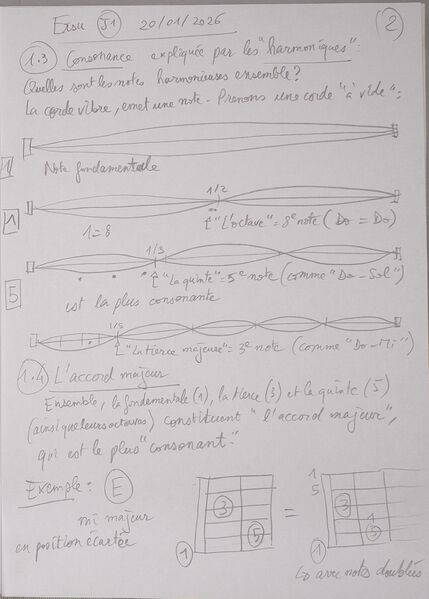 Ersu J1 20/01/2026 (2)
1.3 Consonance expliquée par les "harmoniques":
Quelles sont les notes harmonieuses ensemble?
La corde vibre, émet une note. Prenons une corde "à vide":
1
Note fondamentale
1/2
1
1=8
"L'octave" = 8e note (Do = Do)
1/3
"La quinte" = 5e note (comme "Do-Sol")
5
est la plus consonante
1/5
"La tierce majeure" = 3e note (comme "Do-Mi")
1.4 L'accord majeur
Ensemble, la fondamentale (1), la tierce (3) et la quinte (5)
(ainsi que leurs octaves) constituent "l'accord majeur",
qui est le plus "consonant."
Exemple: E
mi majeur
en position écartée
3
5
1
=
1
5
3
1
1
↳ avec notes doublées